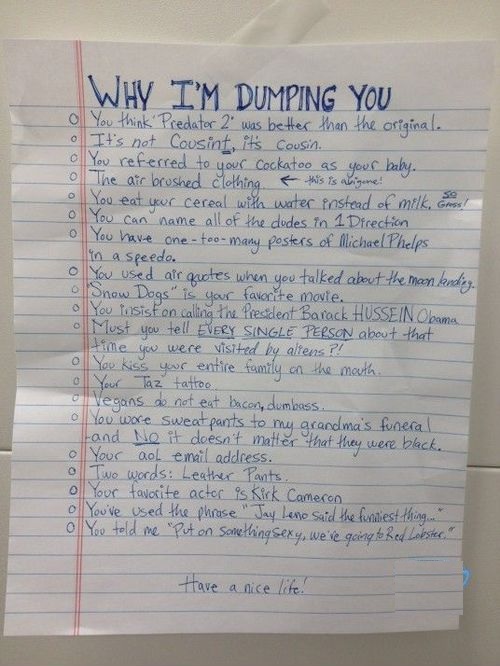 WHY I'M DUMPING YOU
You think 'Predator 2' was better than the original.
It's not Cousint, it's cousin.
You referred to your cockatoo as your baby.
The air brushed clothing ← this is a bigone!
You eat your cereal with water instead of milk. SO Gross!
You can name all of the dudes in 1 Direction
You have one-too-many posters of Michael Phelps
in a speedo.
You used air quotes when you talked about the moon landing.
"Snow Dogs" is your favorite movie.
You insist on calling the President Barack HUSSEIN Obama
Must you tell EVERY SINGLE PERSON about that
time you were visited by aliens?!
You kiss your entire family on the mouth.
Your Taz tattoo.
Vegans do not eat bacon, dumbass.
You wore sweatpants to my grandma's funeral
-and NO it doesn't matter that they were black.
Your aol email address.
Two words: Leather Pants.
Your favorite actor is Kirk Cameron
You've used the phrase "Jay Leno said the funniest thing..."
You told me "Put on something sexy, we're going to Red Lobster."
Have a nice life!